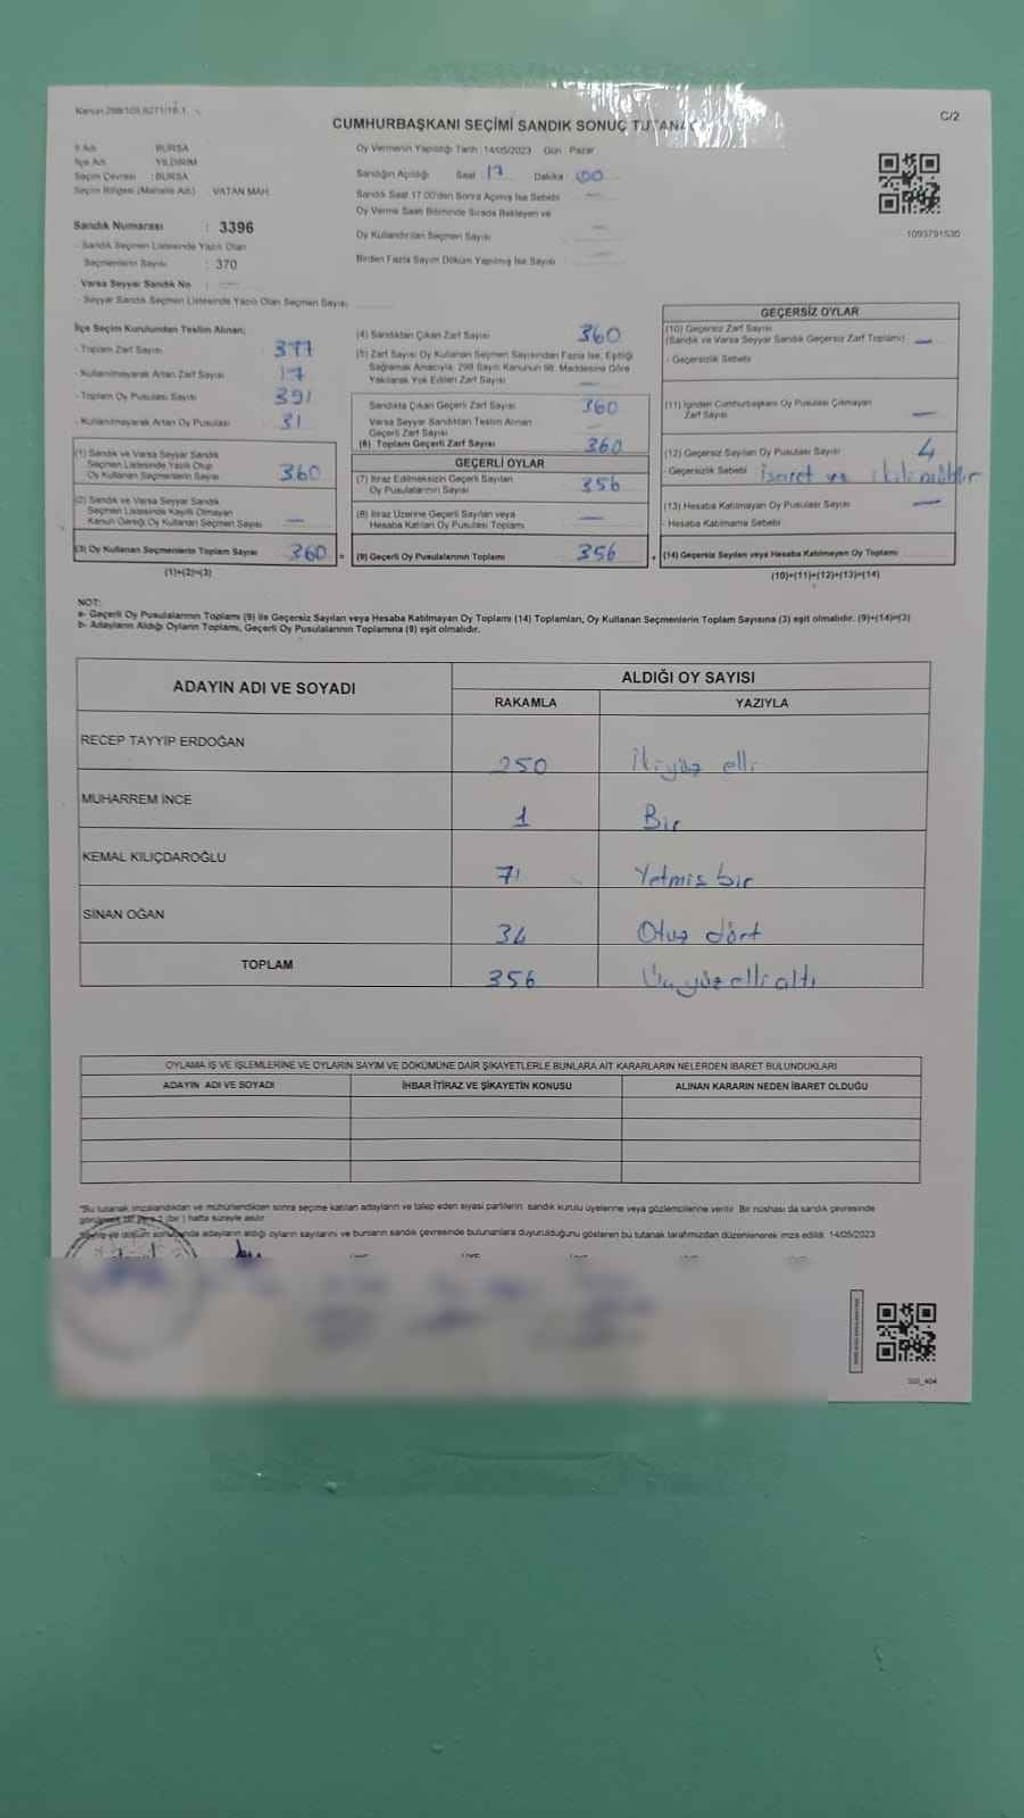 C/2
CUMHURBAŞKANI SEÇİMİ SANDIK SONUÇ TUTANA
İl Adı BURSA
İlçe Adı YILDIRIM
Seçim Çevresi : BURSA
Seçim Bölgesi (Mahalle Adı) VATAN MAH.
Sandık Numarası : 3396
Sandık Seçmen Listesinde Yazılı Olan
Seçmenlerin Sayısı : 370
Varsa Seyyar Sandık No
Seyyar Sandık Seçmen Listesinde Yazılı Olan Seçmen Sayısı
Oy Vermenin Yapıldığı Tarih : 14/05/2023 Gün : Pazar
Sandığın Açıldığı Saat : 17 Dakika 00
Sandık Saat 17.00'den Sonra Açılmış İse Sebebi
Oy Verme Saati Bitiminde Sırada Bekleyen ve
Oy Kullandırılan Seçmen Sayısı
Birden Fazla Sayım Döküm Yapılmış İse Sayısı
1093791530
İlçe Seçim Kurulundan Teslim Alınan;
- Toplam Zarf Sayısı 377
- Kullanılmayarak Artan Zarf Sayısı 17
- Toplam Oy Pusulası Sayısı 391
- Kullanılmayarak Artan Oy Pusulası 31
(1) Sandık ve Varsa Seyyar Sandık
Seçmen Listesinde Yazılı Olup
Oy Kullanan Seçmenlerin Sayısı 360
(2) Sandık ve Varsa Seyyar Sandık
Seçmen Listesinde Kayıtlı Olmayan
Kanun Gereği Oy Kullanan Seçmen Sayısı —
(3) Oy Kullanan Seçmenlerin Toplam Sayısı 360 =
(1)+(2)=(3)
(4) Sandıktan Çıkan Zarf Sayısı 360
(5) Zarf Sayısı Oy Kullanan Seçmen Sayısından Fazla İse, Eşitliği
Sağlamak Amacıyla, 298 Sayılı Kanunun 98. Maddesine Göre
Yakılarak Yok Edilen Zarf Sayısı —
Sandıkta Çıkan Geçerli Zarf Sayısı 360
Varsa Seyyar Sandıktan Teslim Alınan
Geçerli Zarf Sayısı
(6) Toplam Geçerli Zarf Sayısı 360
GEÇERLİ OYLAR
(7) İtiraz Edilmeksizin Geçerli Sayılan
Oy Pusulalarının Sayısı 356
(8) İtiraz Üzerine Geçerli Sayılan veya
Hesaba Katılan Oy Pusulası Toplamı —
(9) Geçerli Oy Pusulalarının Toplamı 356 +
GEÇERSİZ OYLAR
(10) Geçersiz Zarf Sayısı
(Sandık ve Varsa Seyyar Sandık Geçersiz Zarf Toplamı) —
- Geçersizlik Sebebi
(11) İçinden Cumhurbaşkanı Oy Pusulası Çıkmayan
Zarf Sayısı —
(12) Geçersiz Sayılan Oy Pusulası Sayısı 4
- Geçersizlik Sebebi İşaret ve
(13) Hesaba Katılmayan Oy Pusulası Sayısı —
- Hesaba Katılmama Sebebi
(14) Geçersiz Sayılan veya Hesaba Katılmayan Oy Toplamı
(10)+(11)+(12)+(13)=(14)
NOT:
a- Geçerli Oy Pusulalarının Toplamı (9) ile Geçersiz Sayılan veya Hesaba Katılmayan Oy Toplamı (14) Toplamları, Oy Kullanan Seçmenlerin Toplam Sayısına (3) eşit olmalıdır. (9)+(14)=(3)
b- Adayların Aldığı Oyların Toplamı, Geçerli Oy Pusulalarının Toplamına (9) eşit olmalıdır.
ADAYIN ADI VE SOYADI
ALDIĞI OY SAYISI
RAKAMLA YAZIYLA
RECEP TAYYİP ERDOĞAN 250 İkiyüz elli
MUHARREM İNCE 1 Bir
KEMAL KILIÇDAROĞLU 71 Yetmiş bir
SİNAN OĞAN 34 Otuz dört
TOPLAM 356 Üçyüz elli altı
OYLAMA İŞ VE İŞLEMLERİNE VE OYLARIN SAYIM VE DÖKÜMÜNE DAİR ŞİKAYETLERLE BUNLARA AİT KARARLARIN NELERDEN İBARET BULUNDUKLARI
ADAYIN ADI VE SOYADI İHBAR İTİRAZ VE ŞİKAYETİN KONUSU ALINAN KARARIN NEDEN İBARET OLDUĞU
"Bu tutanak imzalandıktan ve mühürlendikten sonra seçime katılan adayların ve talep eden siyasi partilerin sandık kurulu üyelerine veya gözlemcilerine verilir. Bir nüshası da sandık çevresinde
hafta süreyle asılır.
adayların aldığı oyların sayılarını ve bunların sandık çevresinde bulunanlara duyurulduğunu gösteren bu tutanak tarafımızdan düzenlenerek imza edildi. 14/05/2023